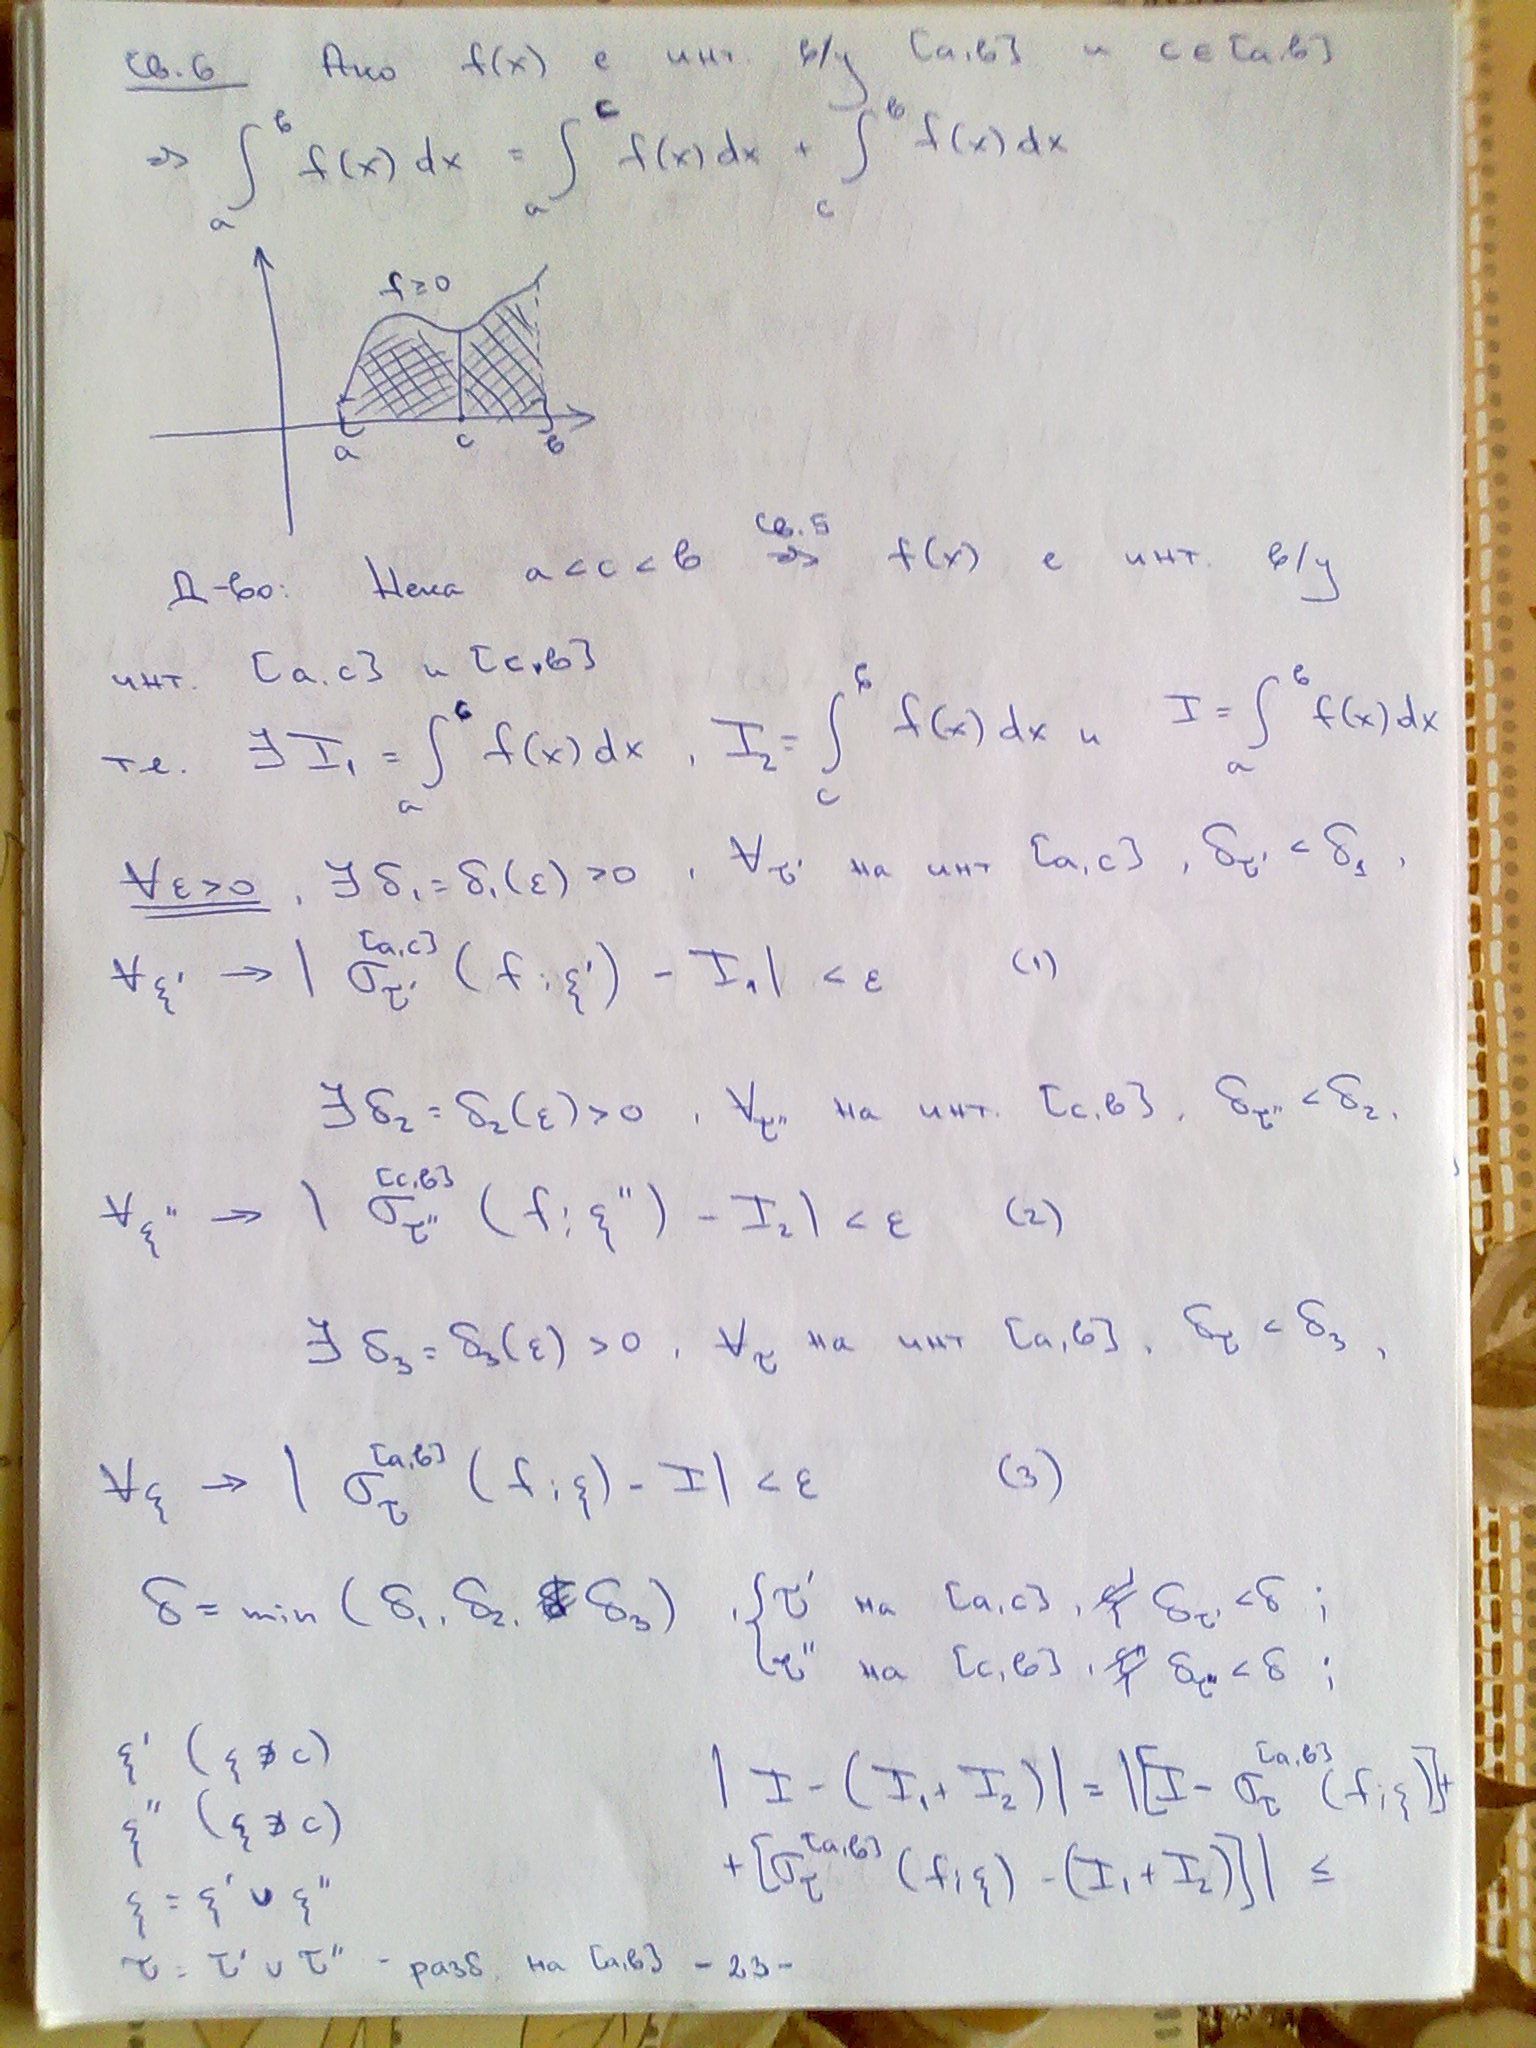 Св. 6 Ако f(x) е инт. в/у [a,b] и c∈[a,b]
⇒ ∫_a^b f(x) dx = ∫_a^c f(x) dx + ∫_c^b f(x) dx
f≥0
a c b
Д-во: Нека a<c<b ⇒^{Св. 5} f(x) е инт. в/у
инт. [a,c] и [c,b]
т.е. ∃ I₁ = ∫_a^b f(x) dx , I₂ = ∫_c^b f(x) dx и I = ∫_a^b f(x) dx
∀ε>0 , ∃ δ₁ = δ₁(ε) >0 , ∀τ' на инт [a,c] , δ_τ' < δ₁ ,
∀ξ' → | σ_τ'^{[a,c]} (f; ξ') − I₁ | < ε (1)
∃ δ₂ = δ₂(ε) >0 , ∀τ'' на инт. [c,b] , δ_τ'' < δ₂ ,
∀ξ'' → | σ_τ''^{[c,b]} (f; ξ'') − I₂ | < ε (2)
∃ δ₃ = δ₃(ε) >0 , ∀τ на инт [a,b] , δ_τ < δ₃ ,
∀ξ → | σ_τ^{[a,b]} (f; ξ) − I | < ε (3)
δ = min (δ₁, δ₂, δ₃) , { τ' на [a,c] , δ_τ' < δ ;
τ'' на [c,b] , δ_τ'' < δ ;
ξ' (ξ ∌ c)
ξ'' (ξ ∌ c)
ξ = ξ' ∪ ξ''
τ = τ' ∪ τ'' - разб. на [a,b]
| I − (I₁ + I₂) | = | [ I − σ_τ^{[a,b]} (f; ξ) ] +
+ [ σ_τ^{[a,b]} (f; ξ) − (I₁ + I₂) ] | ≤
- 23 -